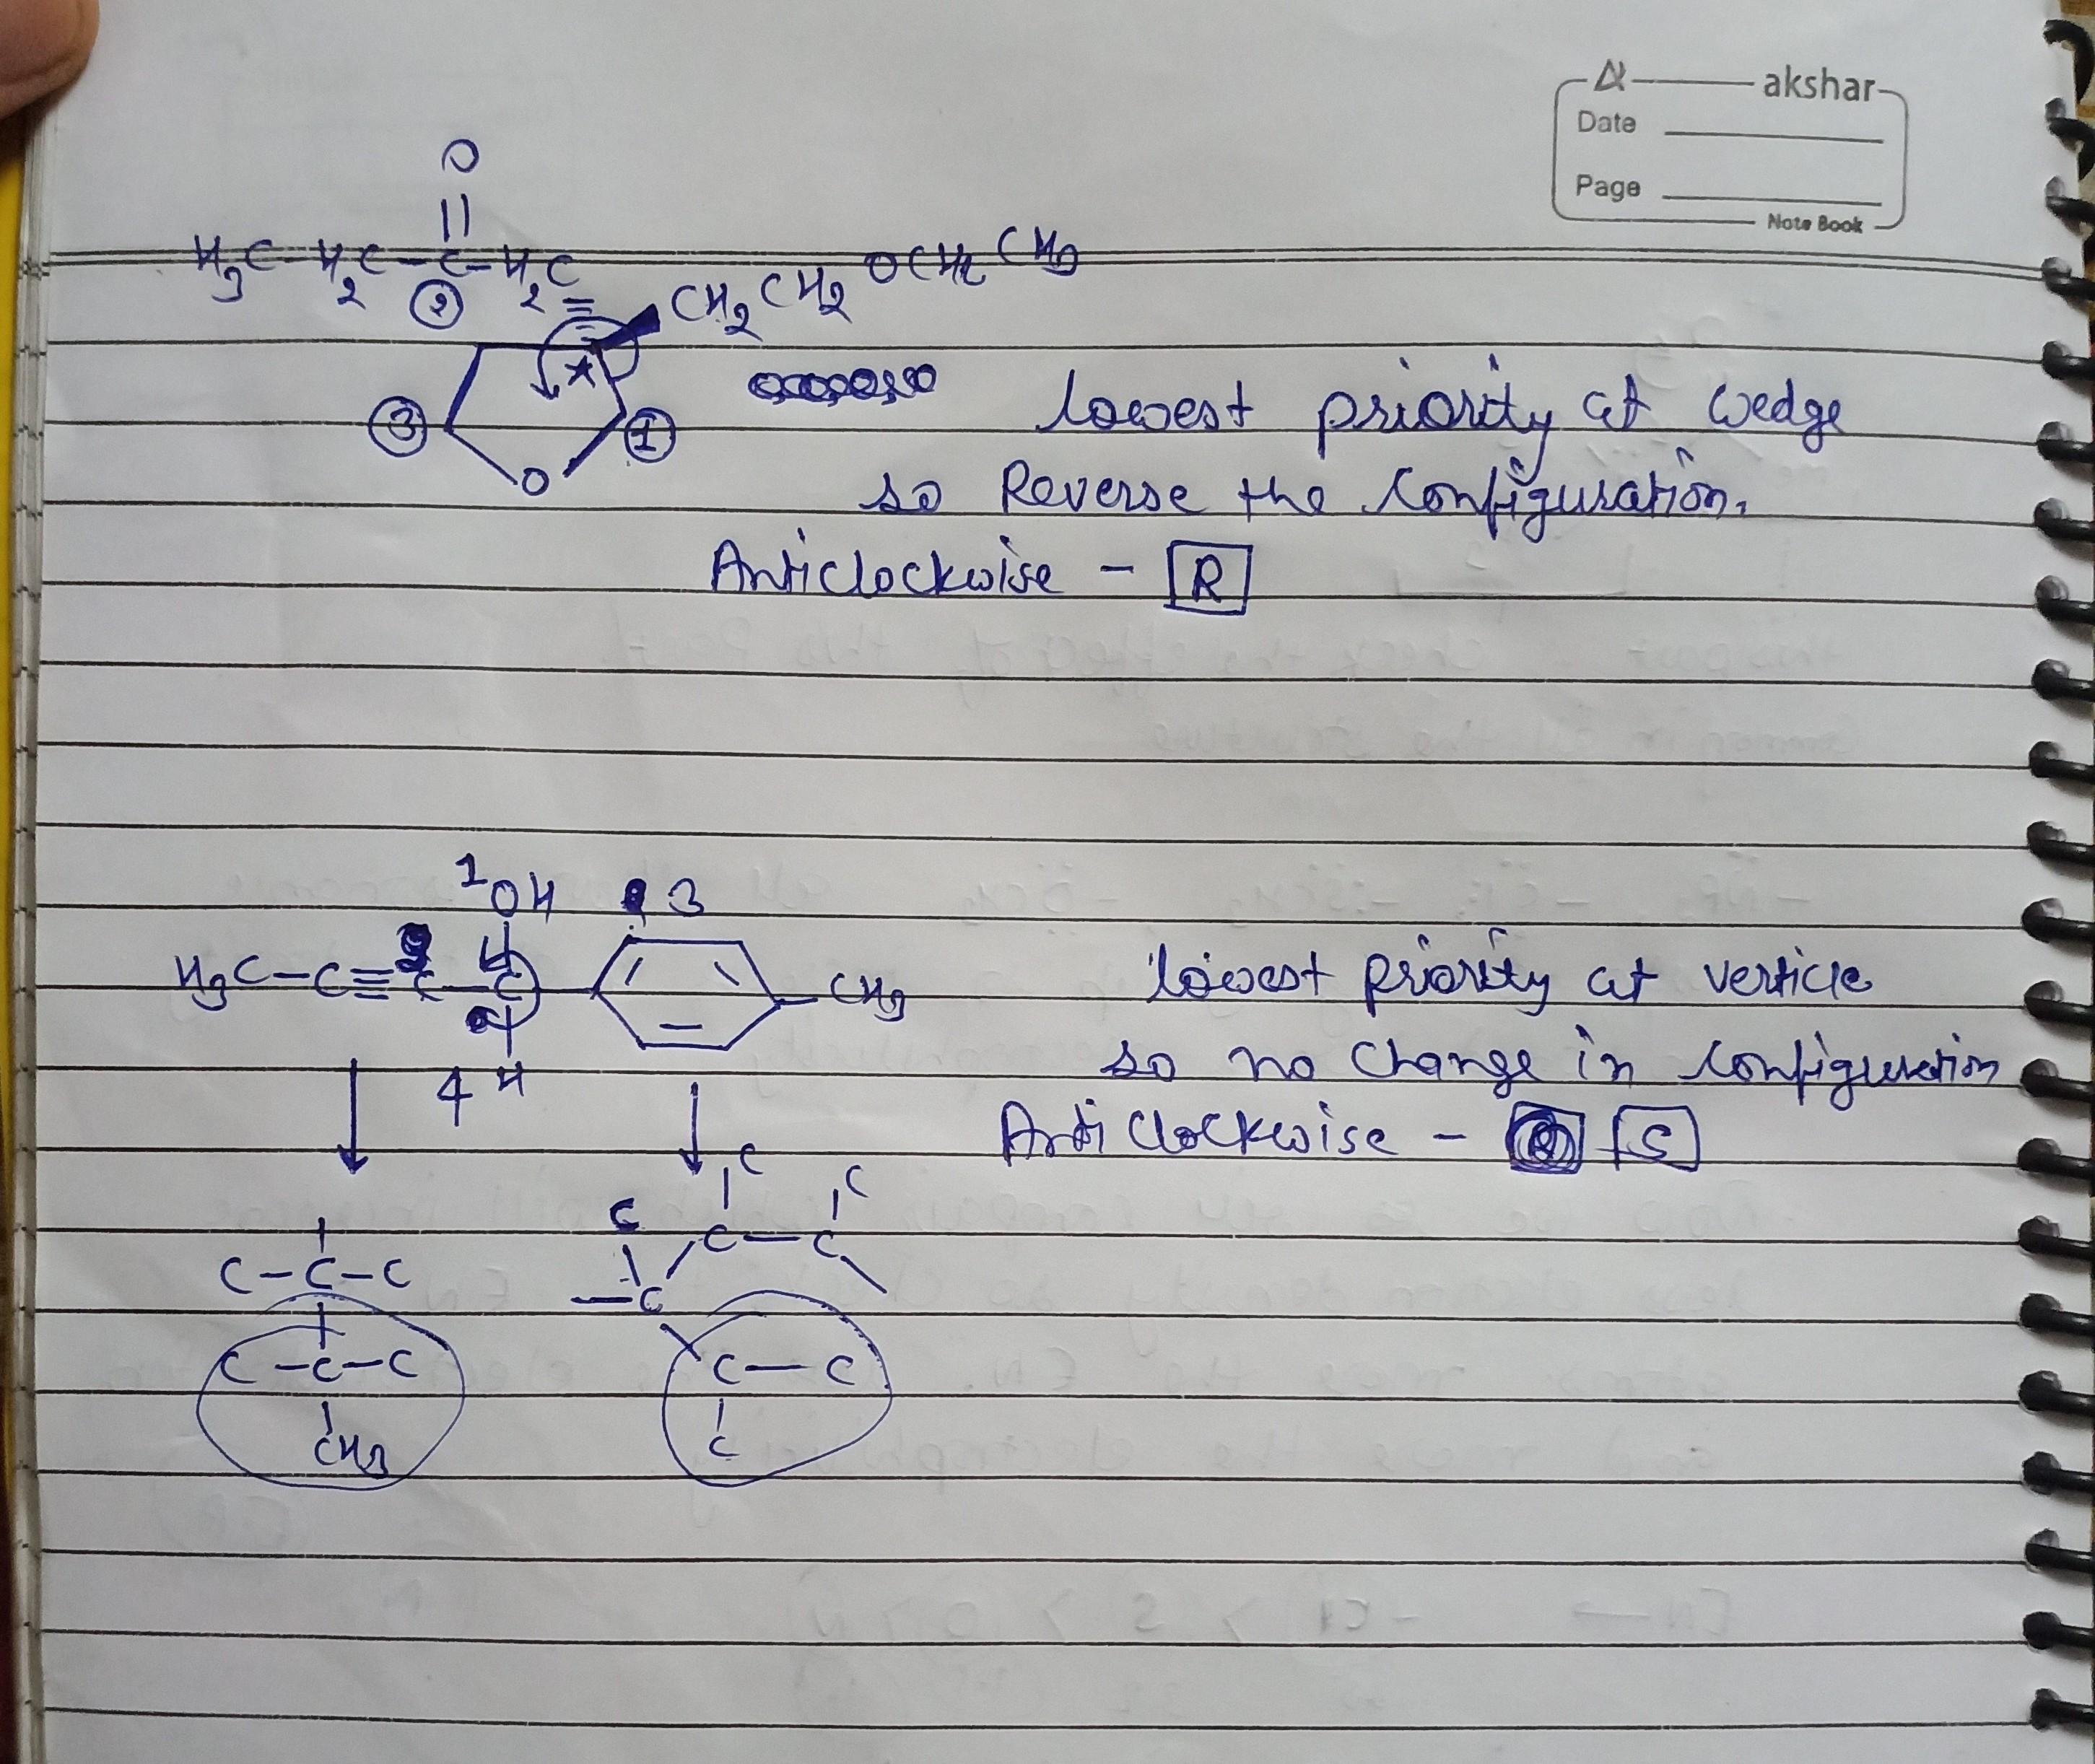 akshar
Date
Page
Note Book
O
||
H3C-H2C-C-H2C
②
CH2CH2OCH2CH3
*
③
①
O
lowest priority at wedge
so Reverse the configuration.
Anticlockwise - R
1
OH
3
H3C-C≡C-C
CH3
4
H
lowest priority at verticle
so no change in configuration
Anticlockwise - S
C
C
C
C-C-C
C-C
C
C-C-C
C-C
CH3
C